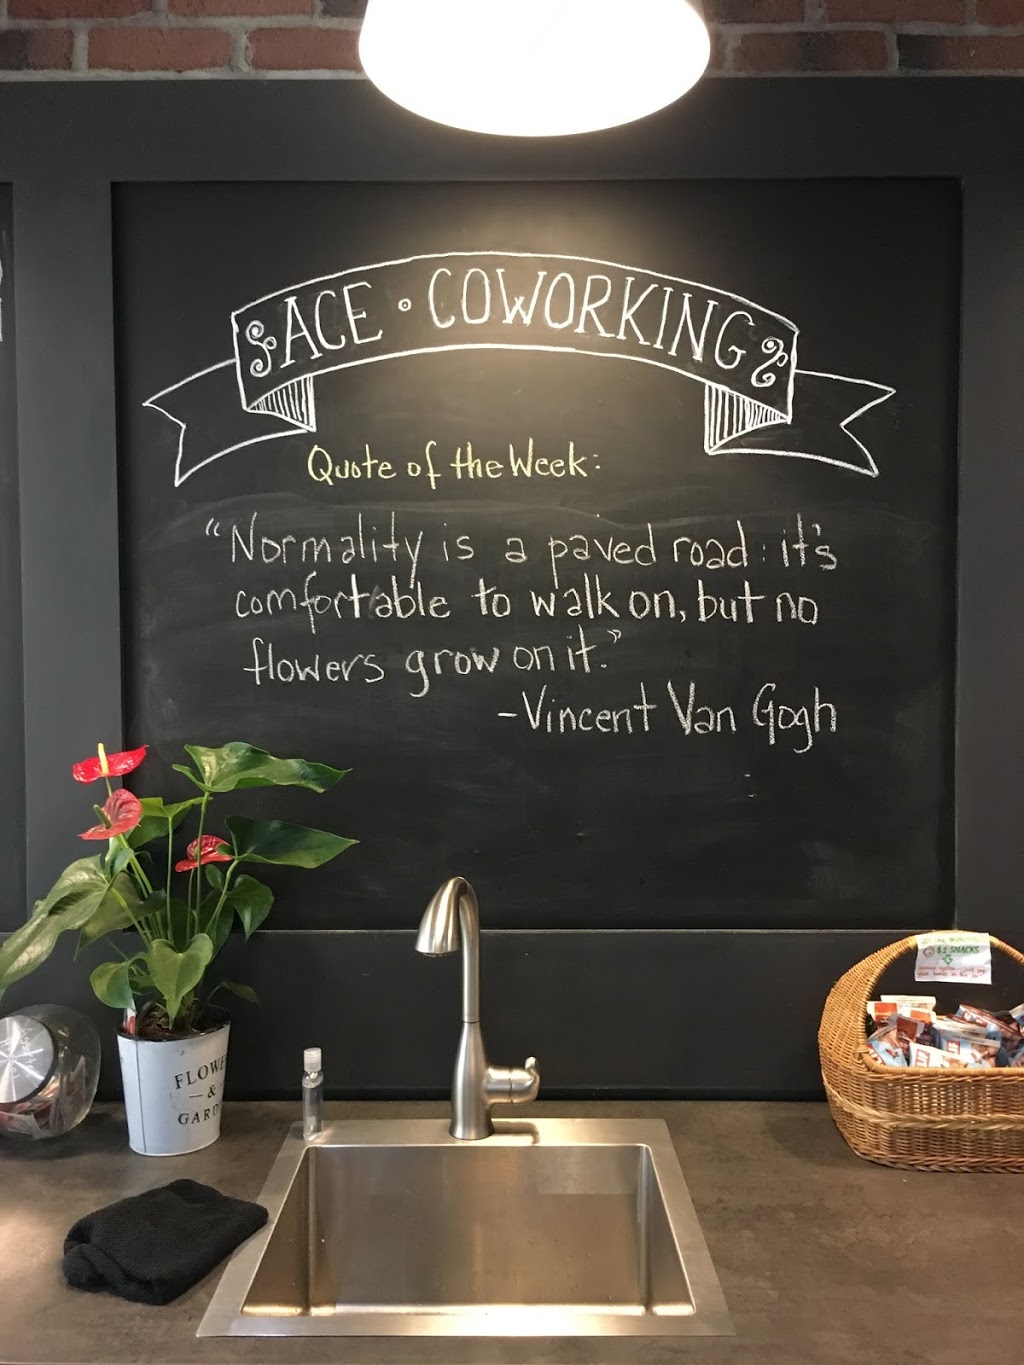 ACE • COWORKING
Quote of the Week:
"Normality is a paved road: it's
comfortable to walk on, but no
flowers grow on it."
-Vincent Van Gogh
FLOWE
— & —
GARD
$1 SNACKS